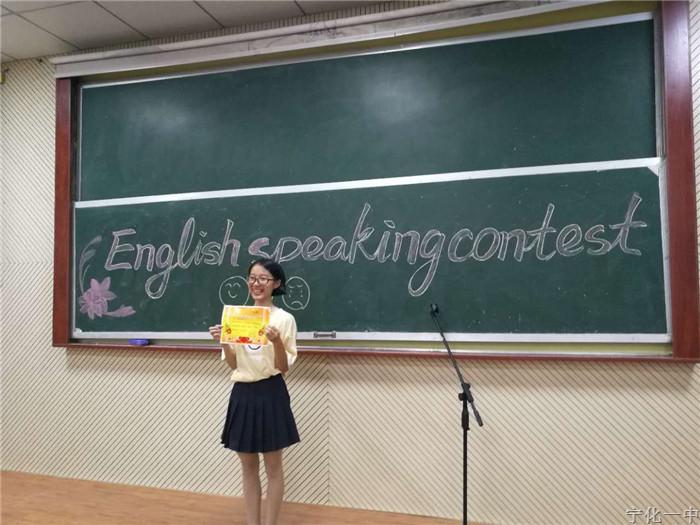 English speaking contest
宁化一中